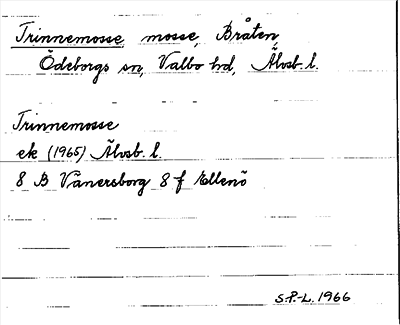 Trinnemosse, mosse, Bråten,
Ödeborgs sn, Valbo hd, Älvsb. l.
Trinnemosse
ek (1965) Älvsb. l.
8 B Vänersborg 8 f Ellenö
S.P.-L. 1966